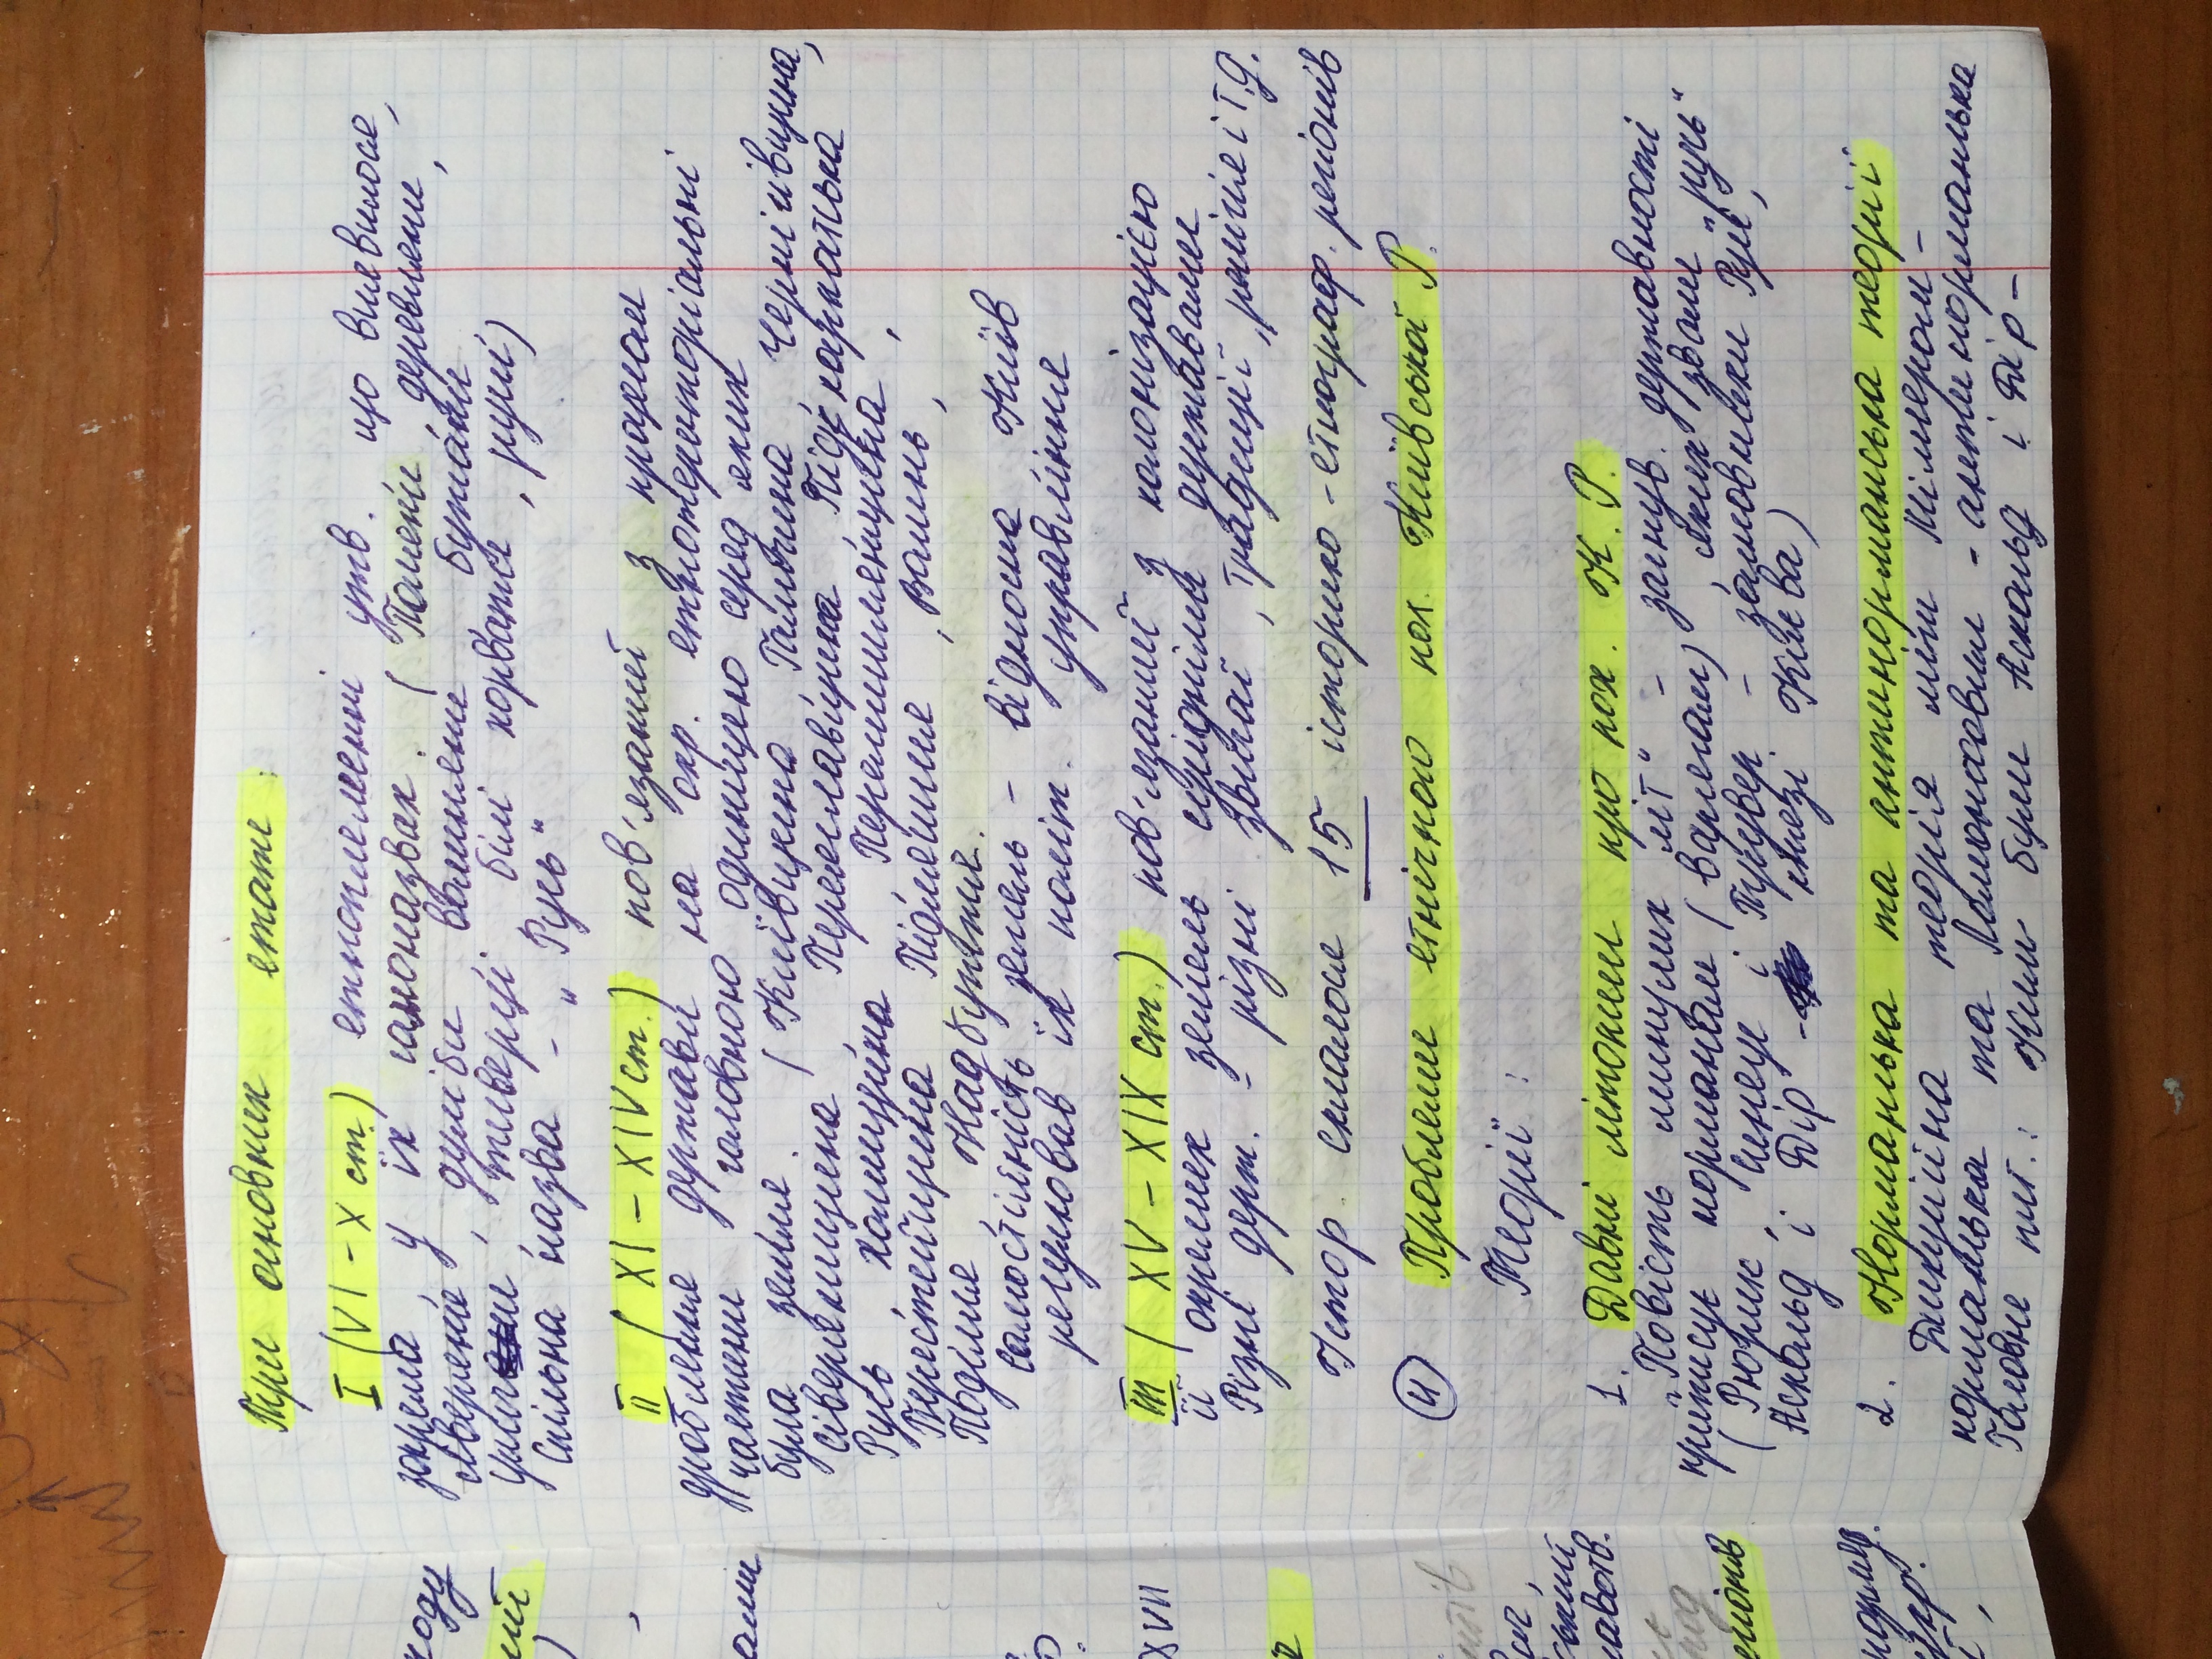 Три основних етапи:
I (VI – X ст.) етноплеменні утв., що виявилося,
зокрема, у їх самоназвах. (Поляни, деревляни,
сіверяни, дуліби, волиняни, бужани,
уличи, тиверці, білі хорвати, руси)
Спільна назва – „Русь“
II (XI – XIV ст.) пов'язаний з процесом
дроблення держави на окр. етнотериторіальні
частини, головною одиницею серед яких
була земля. (Київщина, Галичина, Чернігівщина,
Сіверянщина, Переяславщина, Підкарпатська
Русь, Холмщина, Перемишлянщина,
Берестейщина Підляшшя, Волинь,
Поділля, Надбужжя.
Самостійність земель – відносна, Київ
регулював їх політ. управління
III (XV – XIX ст.) пов'язаний з колонізацією
її окремих земель сусідніми державами
Різні держ. – різні звичаї, традиції, релігія і т.д.
Істор. склалося 15 історико-етнограф. регіонів
4 Проблеми етнічного пох. Київської Р.
Теорії:
1. Давні літописи про пох. К. Р.
„Повість минулих літ“ – заснув. державності
приписує норманам (варягам), яких звали „русь“
(Рюрик, Синеус і Трувер – засновники Русі,
Аскольд і Дір – князі Києва)
2. Норманська та антинорманська теорії
Дискусійна теорія між Міллером –
норманська та Ломоносовим – антинорманська
Головне пит.: Ким були Аскольд і Дір –
ходу
ий
XVII
ський
регіонів
укр.